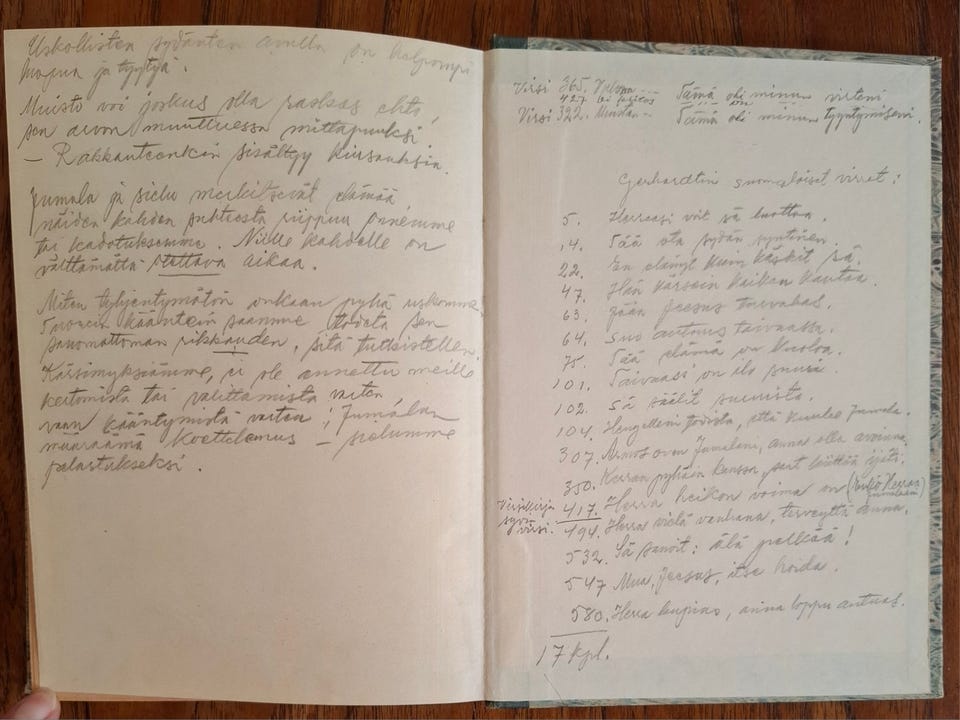 Uskollisten sydänten avulla on helpompi
luopua ja tyytyä.
Muisto voi joskus olla raskas ehto,
sen arvon muuttuessa mittapuuksi.
— Rakkauteenkin sisältyy kiusauksia.
Jumala ja sielu merkitsevät elämää
näiden kahden suhteesta riippuu onnemme
tai kadotuksemme. Niille kahdelle on
välttämättä otettava aikaa.
Miten tyhjentymätön onkaan pyhä uskomme.
Tuonein kääntein saamme todeta sen
sanomattoman rikkauden, sitä tutkistellen.
Kärsimyksiämme, ei ole annettu meille
kertomista tai valittamista varten
vaan kääntymistä varten; Jumalan
määräämä koettelemus — sielumme
pelastukseksi.
Virsi 365. Tämä oli minun virteni
427
Virsi 322. Muutan — Tämä on minun tyyntymiseni.
Gerhardtin suomalaiset virret:
5. Herraasi voit sä luottaa.
14. Tää ota sydän syntinen.
22. En elänyt kuin käskit sä.
47. Hän kärsein kaiken kantaa.
63. Jään Jeesus turvahas.
64. Suo autuus taivaassa.
75. Tää elämä on kuoloa.
101. Taivaassi on ilo puura.
102. Sä säälit suuristi.
104. Hengelleni todista, että kuulee Jumala.
307. Armos oven Jumalani, anna olla avoinna.
350. Kerran pyhäin kanssa, saat käyttää ijäti.
Virsikirja
417. Herra heikon voima on (Turhö Herran
494. Herra vielä vanhana, terveyttä anna.
532. Sä sanoit: älä pelkää!
547 Mua, Jeesus, itse hoida.
580. Herra kupias, anna loppu autuas.
17 kpl.